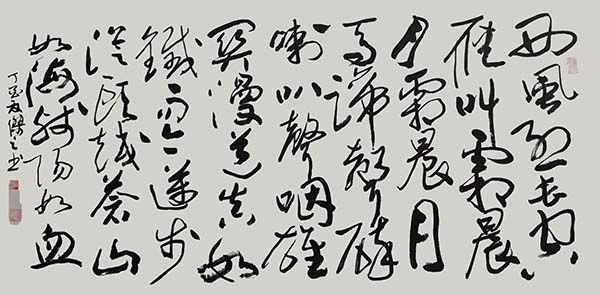 西風烈長空
雁叫霜晨
月霜晨月
馬蹄聲碎
喇叭聲咽雄
關漫道真如
鐵而今邁步
從頭越蒼山
如海残陽如血
丁酉書